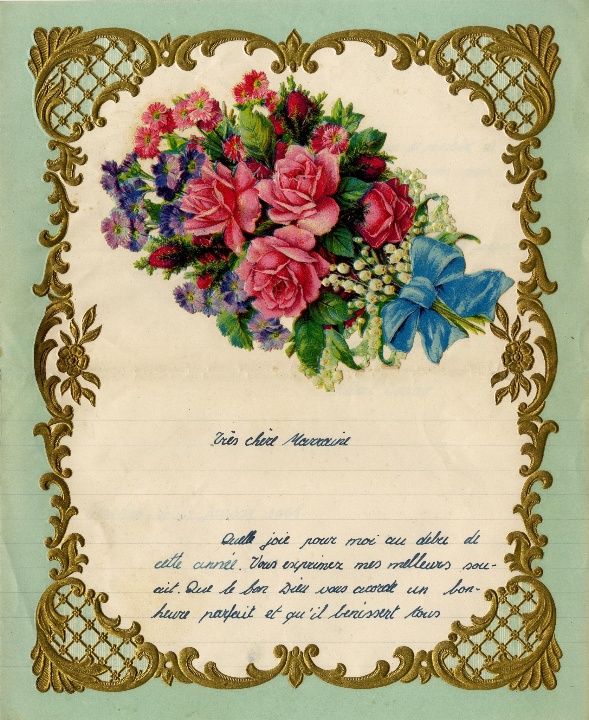 Très chère Marraine
Quelle joie pour moi au debu de
cette année. Vous exprimez mes melleurs sou-
ait. Que le bon Dieu vous acorde un bon-
heure parfait et qu'il benissert tous